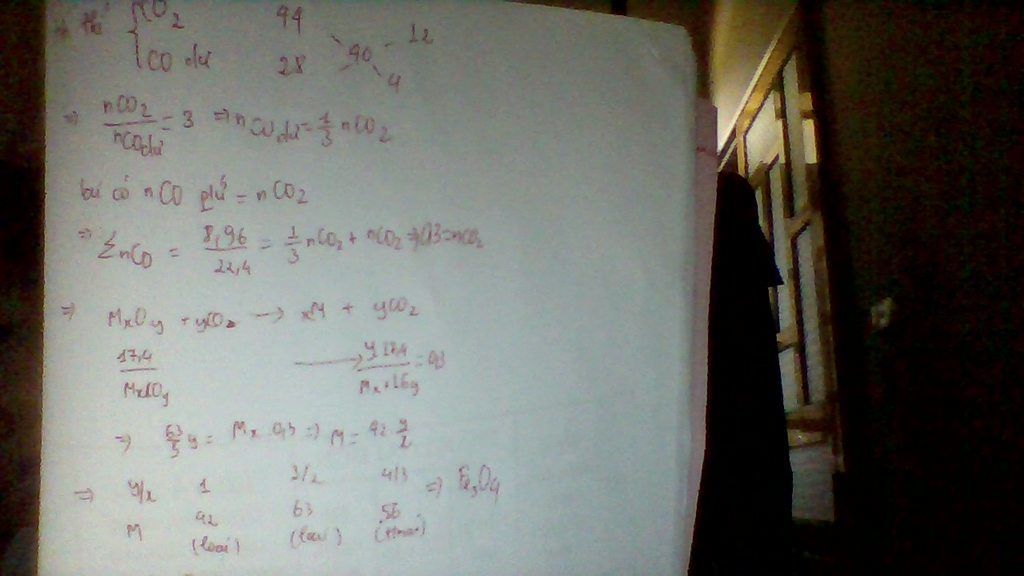 CO2 44 12
CO dư 28 40 4
⇒ nCO2/nCOdư = 3 ⇒ nCO dư = 1/3 nCO2
có nCO = nCO2
⇒ ΣnCO = 8,96/22,4 = 1/3 nCO2 + nCO2 ⇒ 0,3 = nCO2
⇒ MxOy + yCO2 → xM + yCO2
17,4/MxOy → y.17,4/Mx+16y = 0,3
⇒ 63/5 y = Mx.0,3 ⇒ M = 42.y/x
⇒ y/x 1 3/2 4/3 ⇒ Fe3O4
M 42 63 56
(loại) (loại)